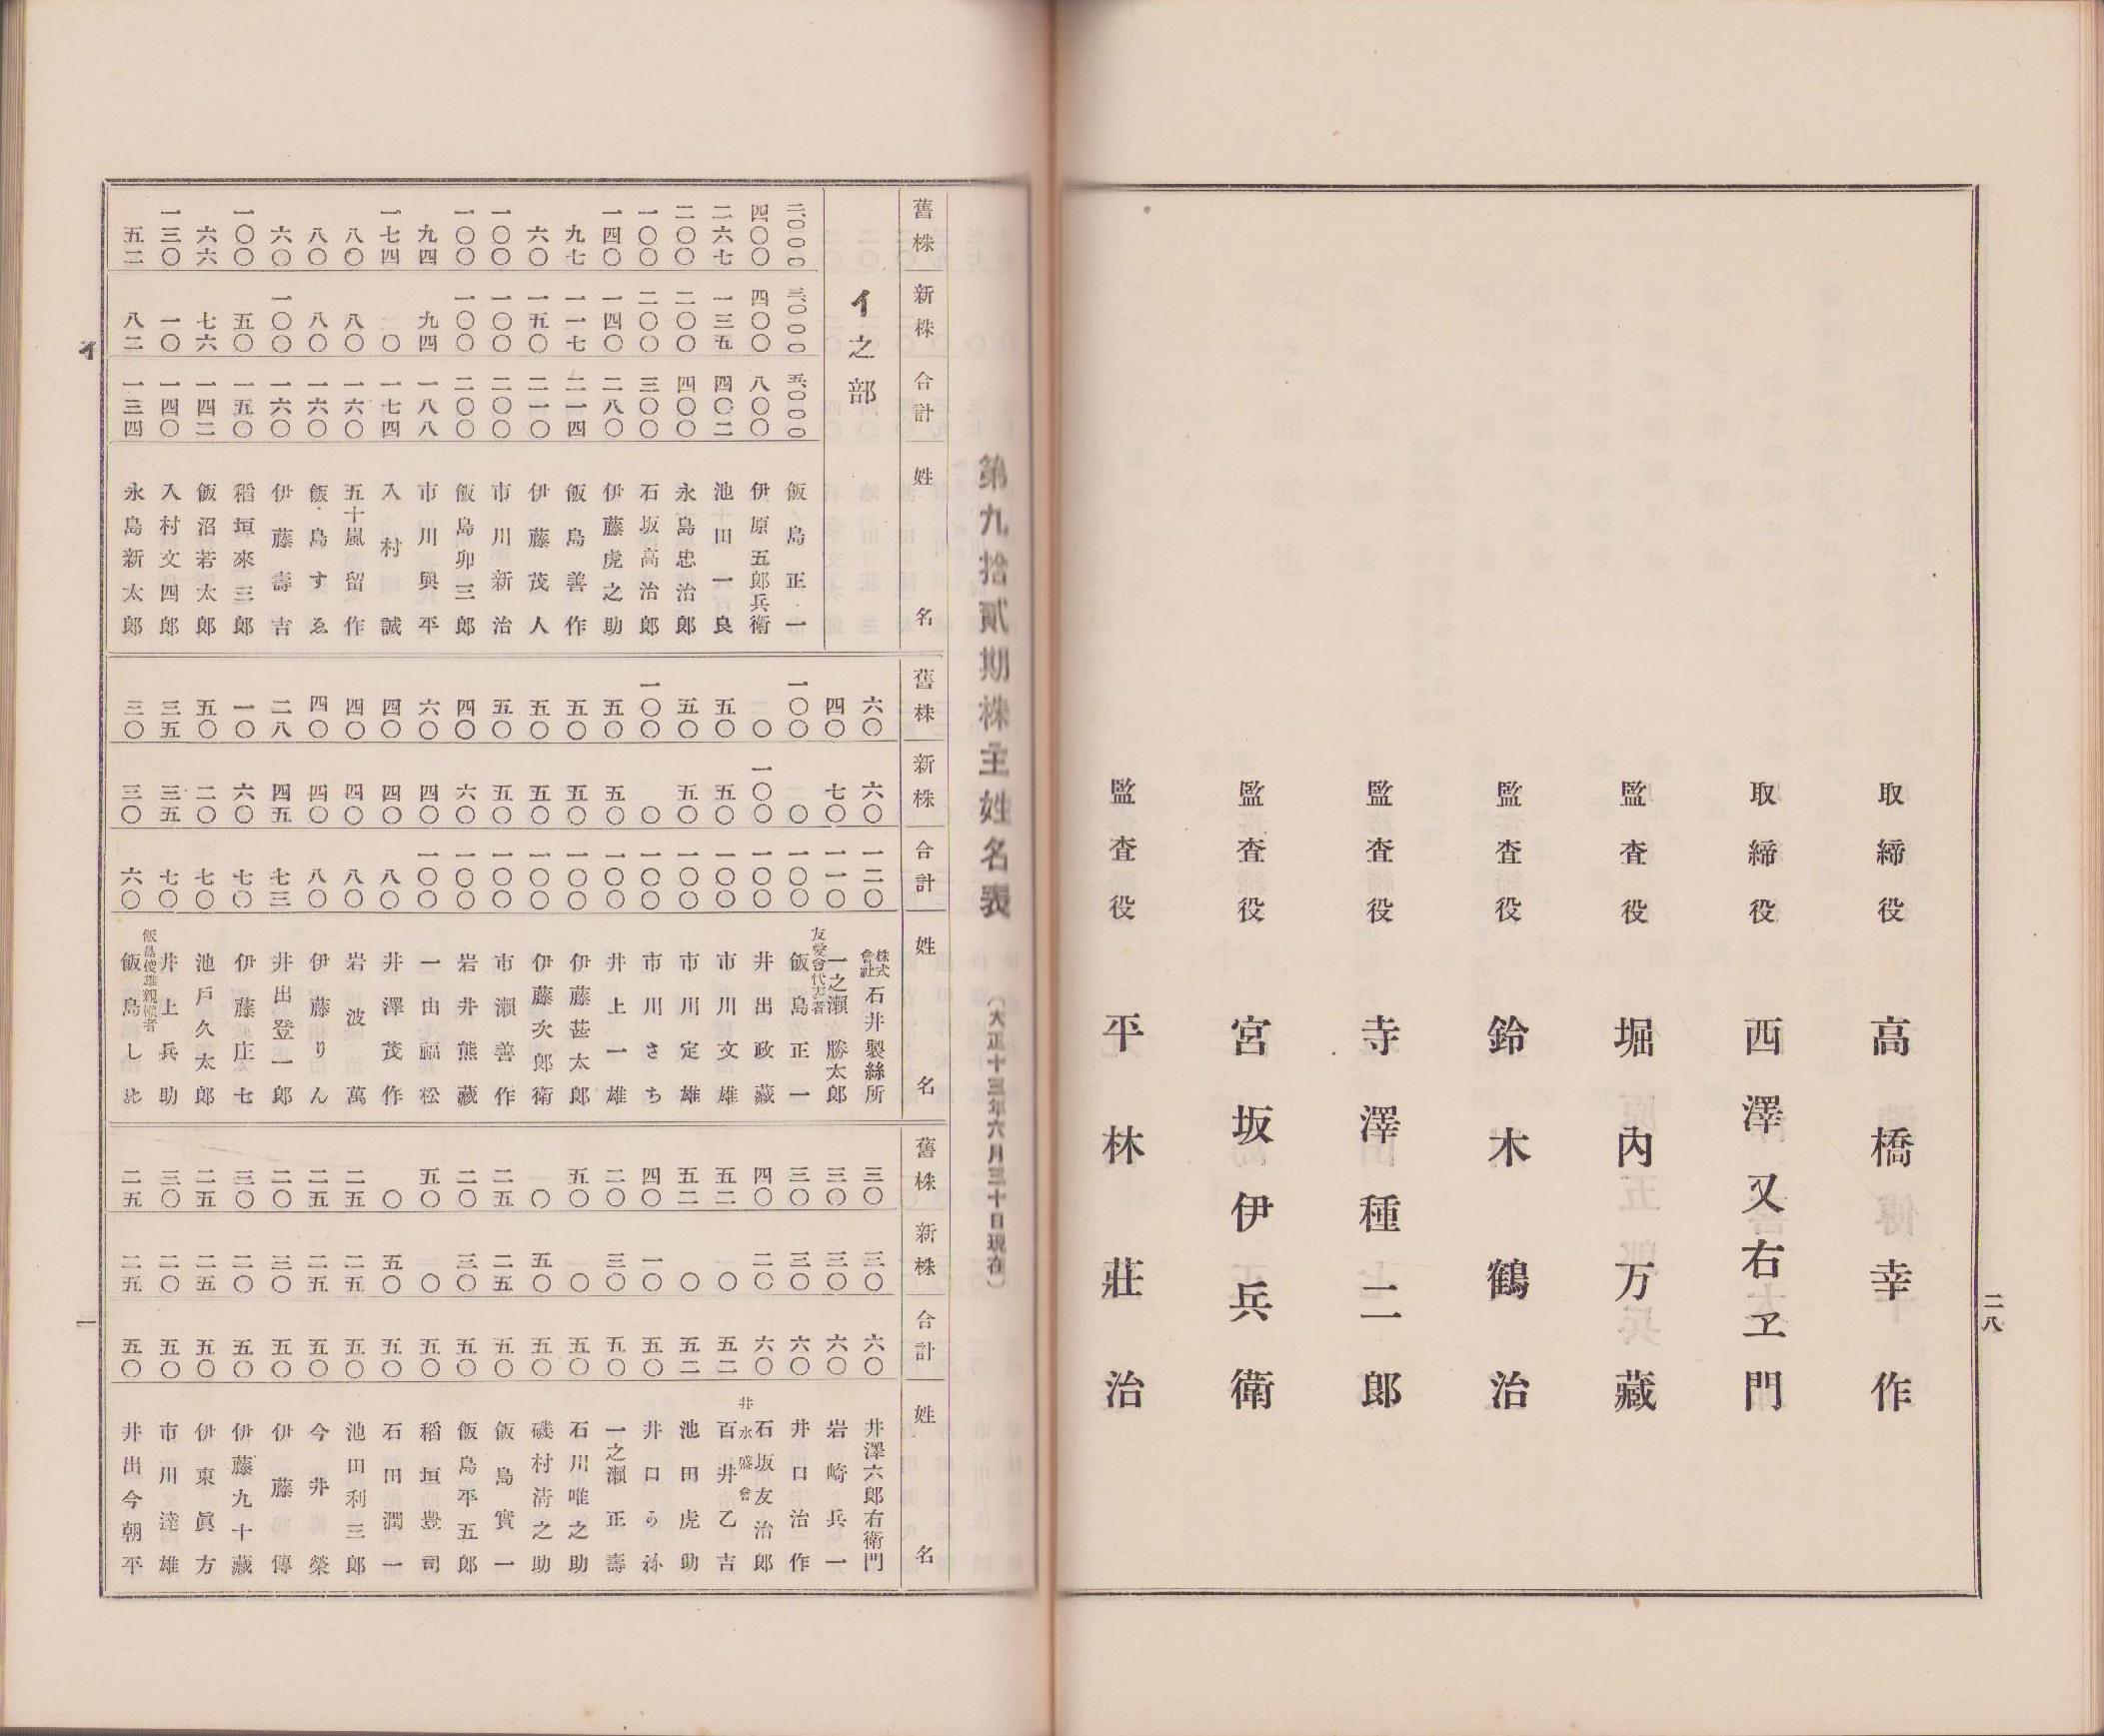 二八
取締役 高橋幸作
取締役 西澤又右ヱ門
監査役 堀内万藏
監査役 鈴木鶴治
監査役 寺澤種二郎
監査役 宮坂伊兵衛
監査役 平林莊治
第九拾貳期株主姓名表 (大正十三年六月三十日現在)
舊株 新株 合計 姓名
イ之部
二、〇〇〇 三、〇〇〇 五、〇〇〇 飯島正一
四〇〇 四〇〇 八〇〇 伊原五郎兵衛
二六七 一三五 四〇二 池田一良
二〇〇 二〇〇 四〇〇 永島忠治郎
一〇〇 二〇〇 三〇〇 石坂高治郎
一四〇 一四〇 二八〇 伊藤虎之助
九七 一一七 二一四 飯島善作
六〇 一五〇 二一〇 伊藤茂人
一〇〇 一〇〇 二〇〇 市川新治
一〇〇 一〇〇 二〇〇 飯島卯三郎
九四 九四 一八八 市川與平
一七四 〇 一七四 入村誠
八〇 八〇 一六〇 五十嵐留作
八〇 八〇 一六〇 飯島すゑ
六〇 一〇〇 一六〇 伊藤壽吉
一〇〇 五〇 一五〇 稻垣來三郎
六六 七六 一四二 飯沼若太郎
一三〇 一〇 一四〇 入村文四郎
五二 八二 一三四 永島新太郎
舊株 新株 合計 姓名
六〇 六〇 一二〇 株式會社石井製絲所
四〇 七〇 一一〇 一之瀬勝太郎
一〇〇 〇 一〇〇 友愛會代表者 飯島正一
〇 一〇〇 一〇〇 井出政藏
五〇 五〇 一〇〇 市川文雄
五〇 五〇 一〇〇 市川定雄
一〇〇 〇 一〇〇 市川さち
五〇 五〇 一〇〇 井上一雄
五〇 五〇 一〇〇 伊藤甚太郎
五〇 五〇 一〇〇 伊藤次郎衛
五〇 五〇 一〇〇 市瀬善作
四〇 六〇 一〇〇 岩井熊藏
六〇 四〇 一〇〇 一由福松
四〇 四〇 八〇 井澤茂作
四〇 四〇 八〇 岩波萬
四〇 四〇 八〇 伊藤りん
二八 四五 七三 井出登一郎
一〇 六〇 七〇 伊藤庄七
五〇 二〇 七〇 池戸久太郎
三五 三五 七〇 井上兵助
三〇 三〇 六〇 飯島俊雄親權者 飯島し
舊株 新株 合計 姓名
三〇 三〇 六〇 井澤六郎右衛門
三〇 三〇 六〇 岩崎兵一
三〇 三〇 六〇 井口治作
四〇 二〇 六〇 石坂友治郎
五二 〇 五二 井永盛會 百井乙吉
五二 〇 五二 池田虎助
四〇 一〇 五〇 井口
二〇 三〇 五〇 一之瀬正壽
五〇 〇 五〇 石川唯之助
〇 五〇 五〇 磯村淸之助
二五 二五 五〇 飯島實一
二〇 三〇 五〇 飯島平五郎
五〇 〇 五〇 稻垣豊司
〇 五〇 五〇 石田潤一
二五 二五 五〇 池田利三郎
二五 二五 五〇 今井榮
二〇 三〇 五〇 伊藤傳
三〇 二〇 五〇 伊藤九十藏
二五 二五 五〇 伊東眞方
三〇 二〇 五〇 市川達雄
二五 二五 五〇 井出今朝平
イ
一